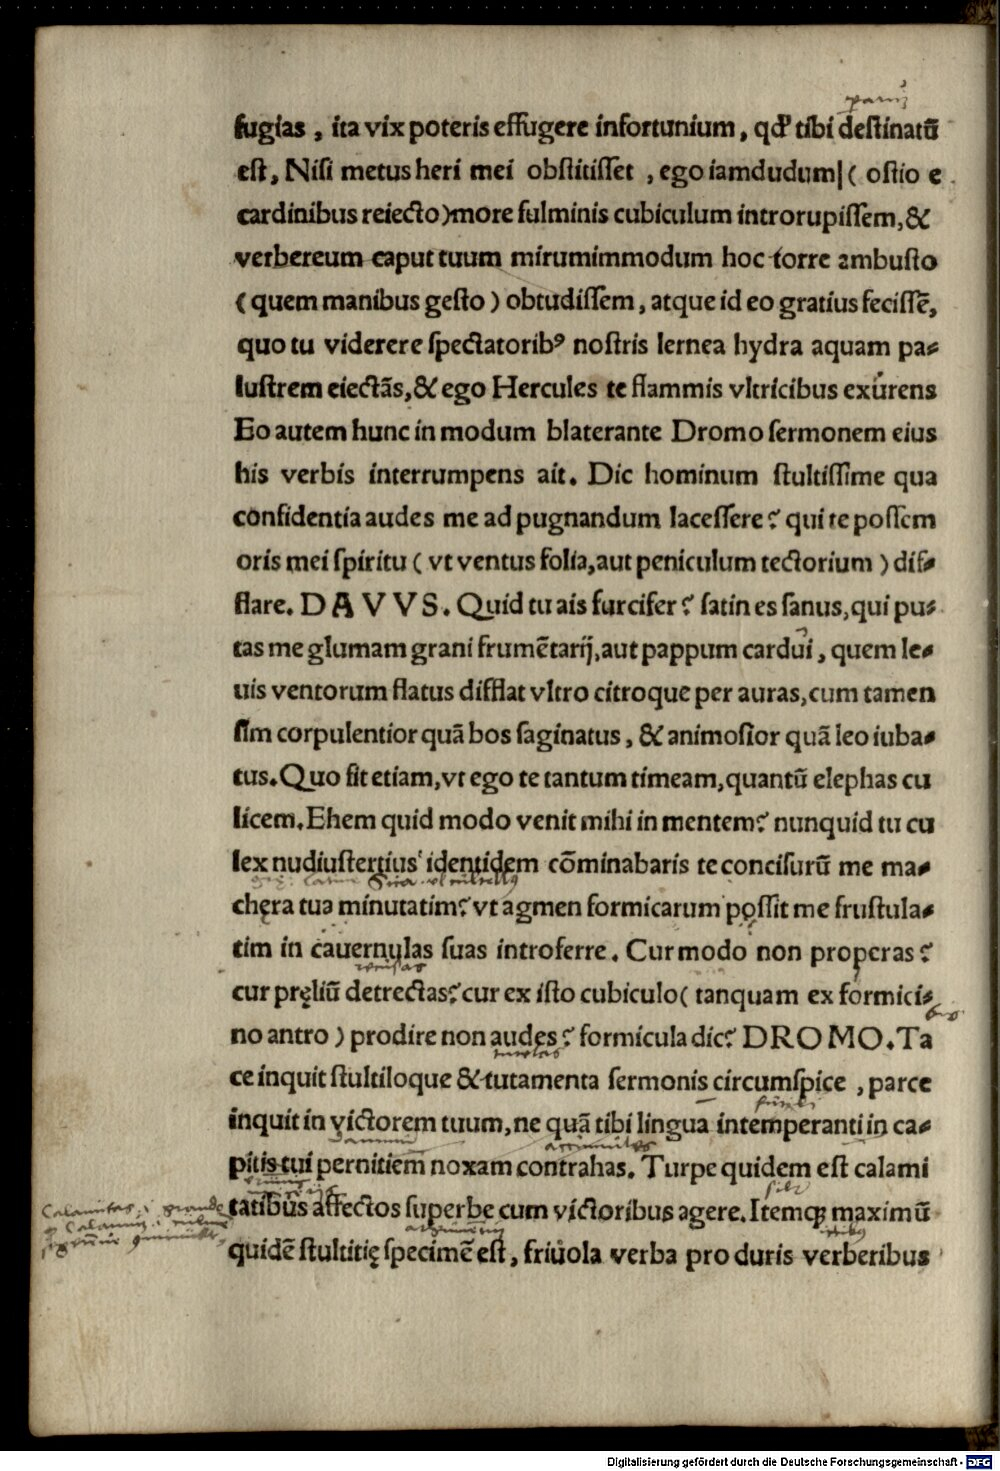 fugias, ita vix poteris effugere infortunium, qđ tibi destinatū
est, Nisi metus heri mei obstitisset, ego iamdudum|( ostio e
cardinibus reiecto)more fulminis cubiculum introrupissem,&
verbereum caput tuum mirumimmodum hoc torre ambusto
(quem manibus gesto) obtudissem, atque id eo gratius fecissē,
quo tu viderere spectatoribꝰ nostris lernea hydra aquam pa-
lustrem eiectās,& ego Hercules te flammis vltricibus exurens
Eo autem hunc in modum blaterante Dromo sermonem eius
his verbis interrumpens ait. Dic hominum stultissime qua
confidentia audes me ad pugnandum lacessere? qui te possem
oris mei spiritu (vt ventus folia,aut peniculum tectorium) dif-
flare. DAVVS. Quid tu ais furcifer? satin es sanus,qui pu-
tas me glumam grani frumētarij,aut pappum cardui, quem le-
uis ventorum flatus difflat vltro citroque per auras,cum tamen
sim corpulentior quā bos saginatus, & animosior quā leo iuba-
tus. Quo fit etiam,vt ego te tantum timeam,quantū elephas cu
licem. Ehem quid modo venit mihi in mentem? nunquid tu cu
lex nudiustertius identidem cōminabaris te concisurū me ma-
chęra tua minutatim? vt agmen formicarum possit me frustula-
tim in cauernulas suas introferre. Cur modo non properas?
cur pręliū detrectas? cur ex isto cubiculo( tanquam ex formici-
no antro) prodire non audes? formicula dic? DROMO. Ta
ce inquit stultiloque & tutamenta sermonis circumspice, parce
inquit in victorem tuum, ne quā tibi lingua intemperanti in ca-
pitis tui pernitiem noxam contrahas. Turpe quidem est calami
Calamitas
tatibus affectos superbe cum victoribus agere. Itemqꝫ maximū
quidē stultitię specimē est, friuola verba pro duris verberibus
Digitalisierung gefördert durch die Deutsche Forschungsgemeinschaft - DFG